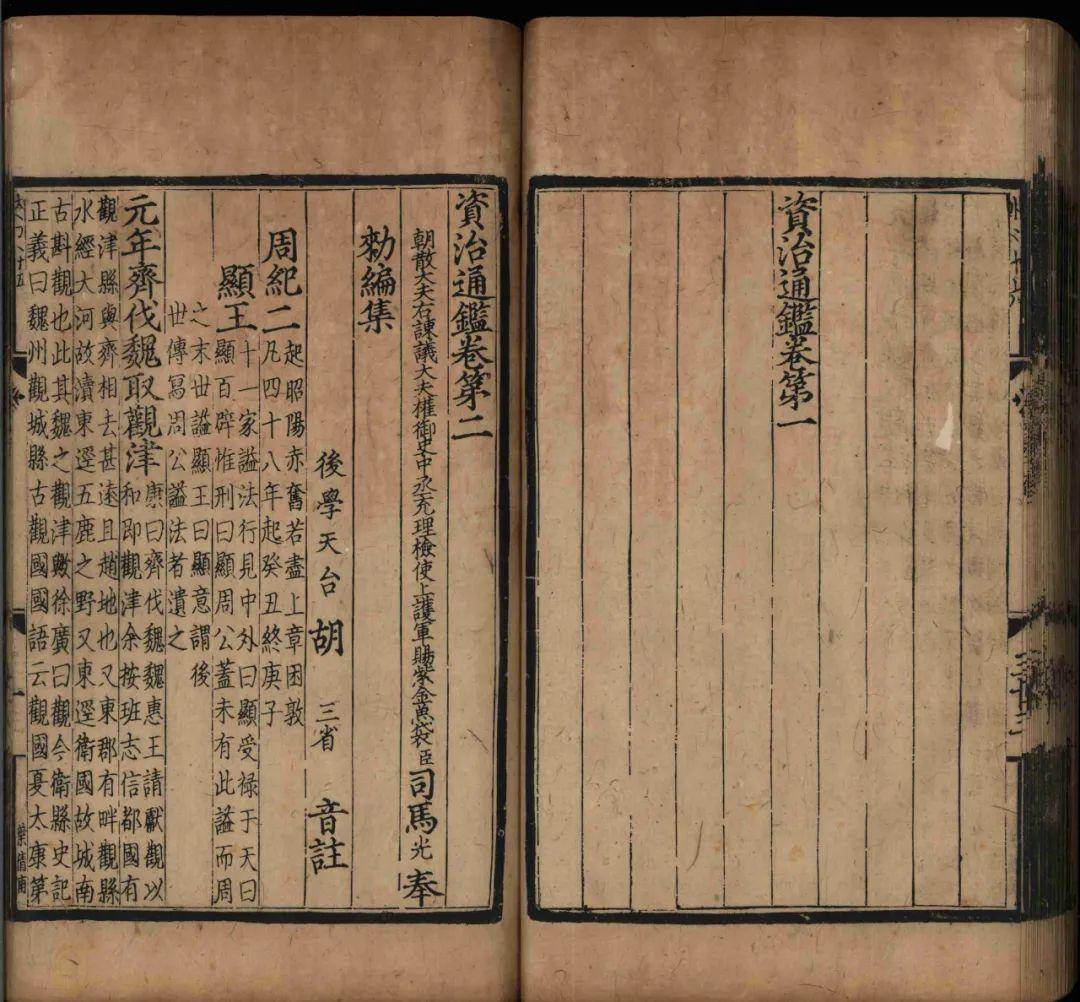 資治通鑑卷第一
資治通鑑卷第二
朝散大夫右諫議大夫權御史中丞充理檢使上護軍賜紫金魚袋臣司馬光奉
勑編集
後學天台胡三省音註
周紀二起昭陽赤奮若盡上章困敦
凡四十八年起癸丑終庚子
顯王十一家謚法行見中外曰顯受禄于天曰
顯百辟惟刑曰顯周公蓋未有此謚而周
之末世謚顯王曰顯意謂後
世傳寫周公謚法者遺之
元年齊伐魏取觀津康曰齊伐魏魏惠王請獻觀以
和即觀津余按班志信都國有
觀津縣與齊相去甚遠且趙地也又東郡有畔觀縣
水經大河故瀆東逕五鹿之野又東逕衛國故城南
古斟觀也此其魏之觀津歟徐廣曰觀今衛縣史記
正義曰魏州觀城縣古觀國國語云觀國夏太康第